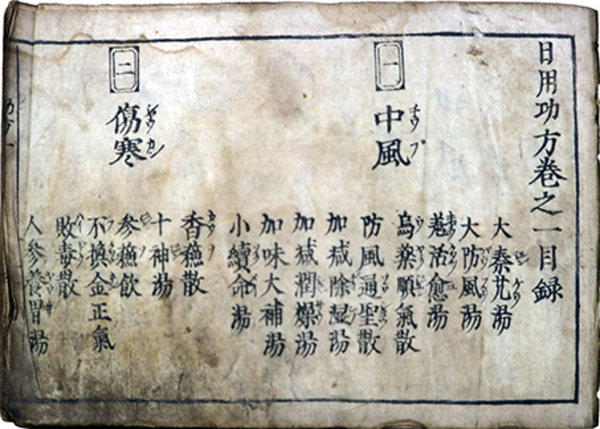 日用功方巻之一目録
一
中風
大秦艽湯
大防風湯
羗活愈湯
烏藥順氣散
防風通聖散
加减除湿湯
加减潤燥湯
加味大補湯
小續命湯
二
傷寒
香蘓散
十神湯
参蘓飲
不換金正氣
敗毒散
人参養胃湯